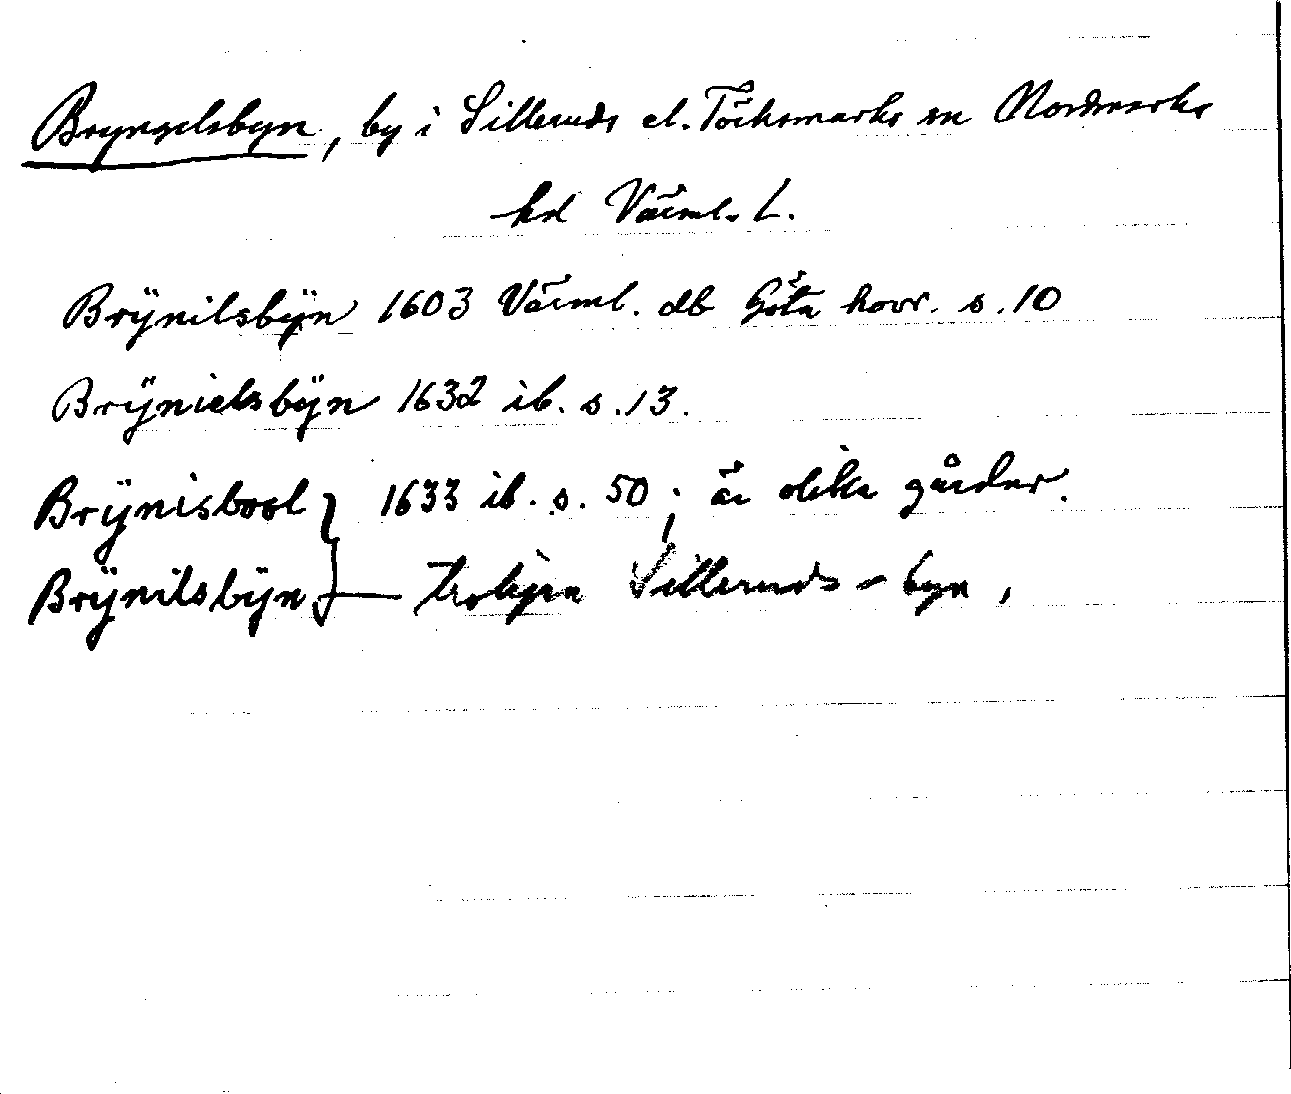 Bryngelsbyn, by i Silleruds el. Töcksmarks sn Nordmarks
hd Värml. L.
Brÿnilsbÿn 1603 Värml. db Göta hovr. s. 10
Brÿnielsbÿn 1632 ib. s. 13.
Brÿnisbool } 1633 ib. s. 50; är olika gårder.
Brÿnilsbÿn } — troligen Silleruds-byn,